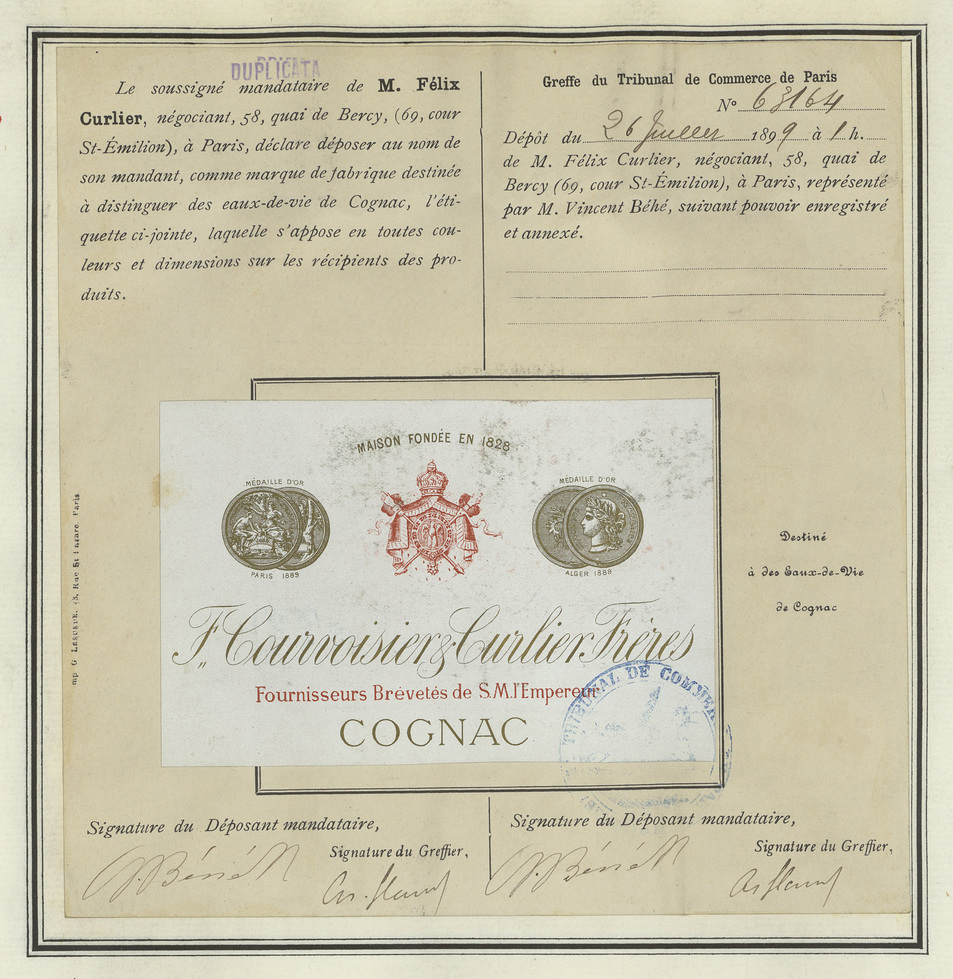 DUPLICATA
Le soussigné mandataire de M. Félix
Curlier, négociant, 58, quai de Bercy, (69, cour
St-Émilion), à Paris, déclare déposer au nom de
son mandant, comme marque de fabrique destinée
à distinguer des eaux-de-vie de Cognac, l'éti-
quette ci-jointe, laquelle s'appose en toutes cou-
leurs et dimensions sur les récipients des pro-
duits.
Greffe du Tribunal de Commerce de Paris
N° 63164
Dépôt du 26 Juillet 1899 à 1 h.
de M. Félix Curlier, négociant, 58, quai de
Bercy (69, cour St-Émilion), à Paris, représenté
par M. Vincent Béhé, suivant pouvoir enregistré
et annexé.
MAISON FONDÉE EN 1828
MÉDAILLE D'OR
PARIS 1889
MÉDAILLE D'OR
ALGER 1888
F. Courvoisier & Curlier Frères
Fournisseurs Brévetés de S.M. l'Empereur
COGNAC
TRIBUNAL DE COMMERCE
Destiné
à des Eaux-de-Vie
de Cognac
Imp G LESUEUR, Rue St Lazare Paris
Signature du Déposant mandataire,
Signature du Greffier,
Signature du Déposant mandataire,
Signature du Greffier,